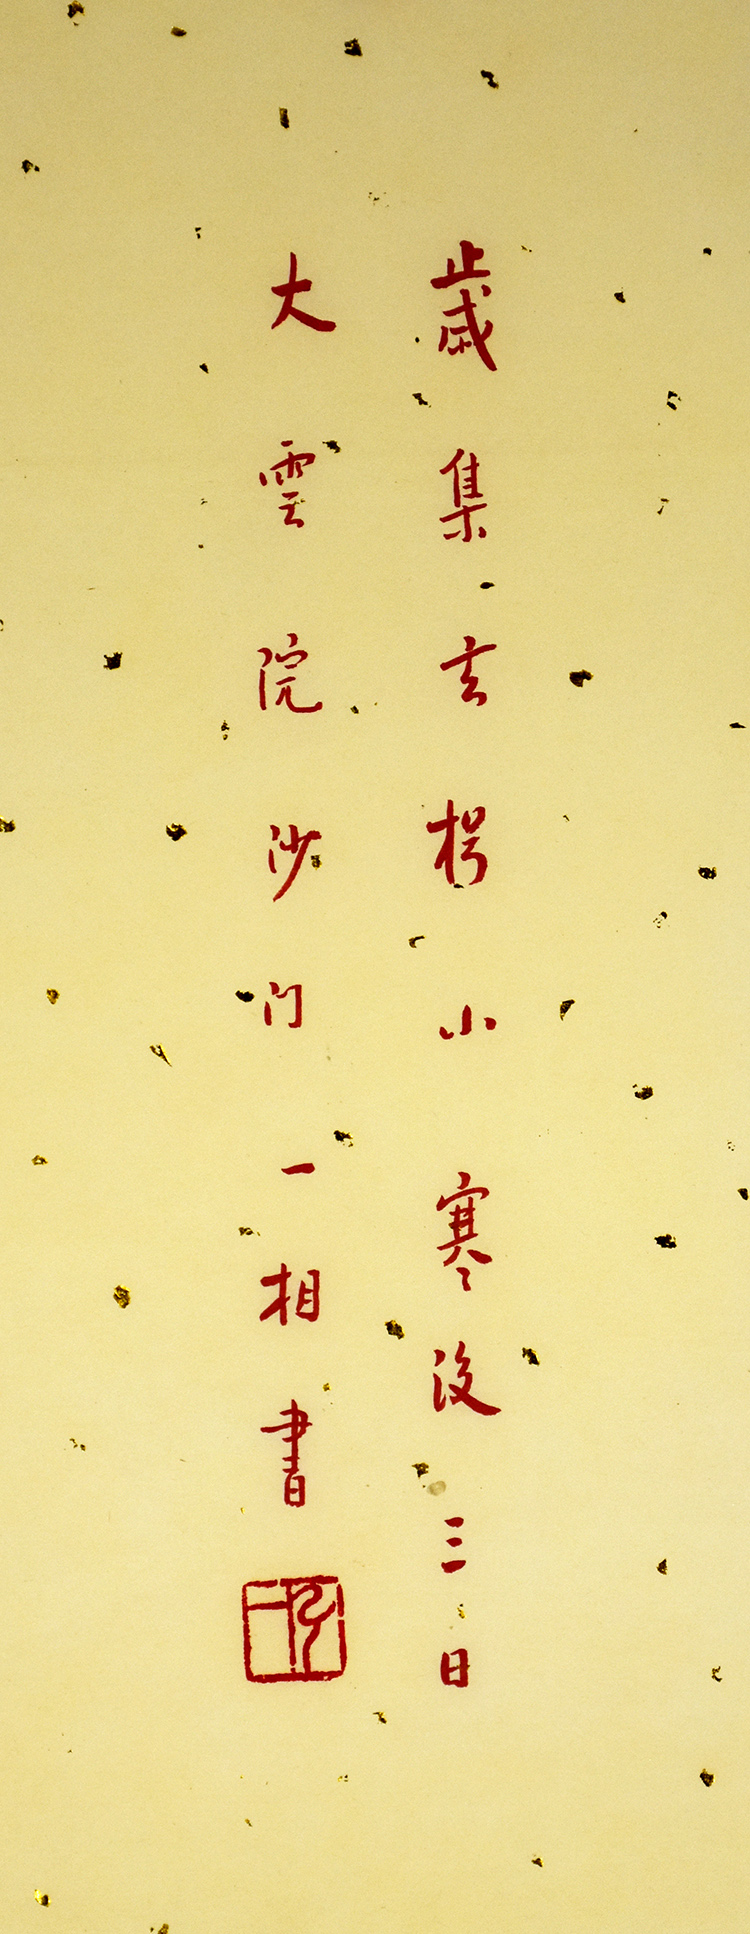 歲集玄枵小寒後三日
大雲院沙门一相書